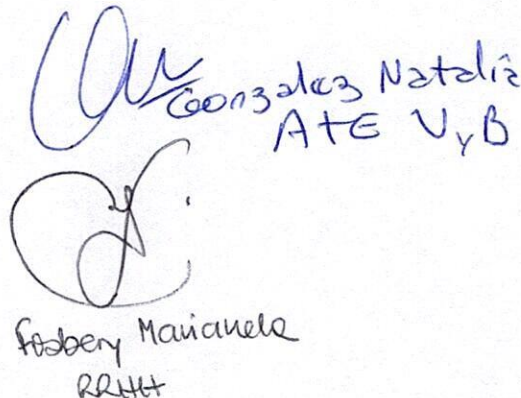 Gonzalez Natalia
ATE VyB
Fosbery Marianela
RRHH